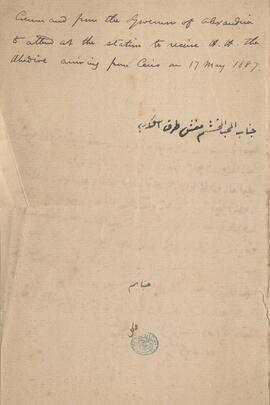 Command from the Governor of Alexandria
to attend at the station to receive H. H. the
Khedive arriving from Cairo on 17 May 1887.
جناب المحب المحتشم مفتش طرف
جناب